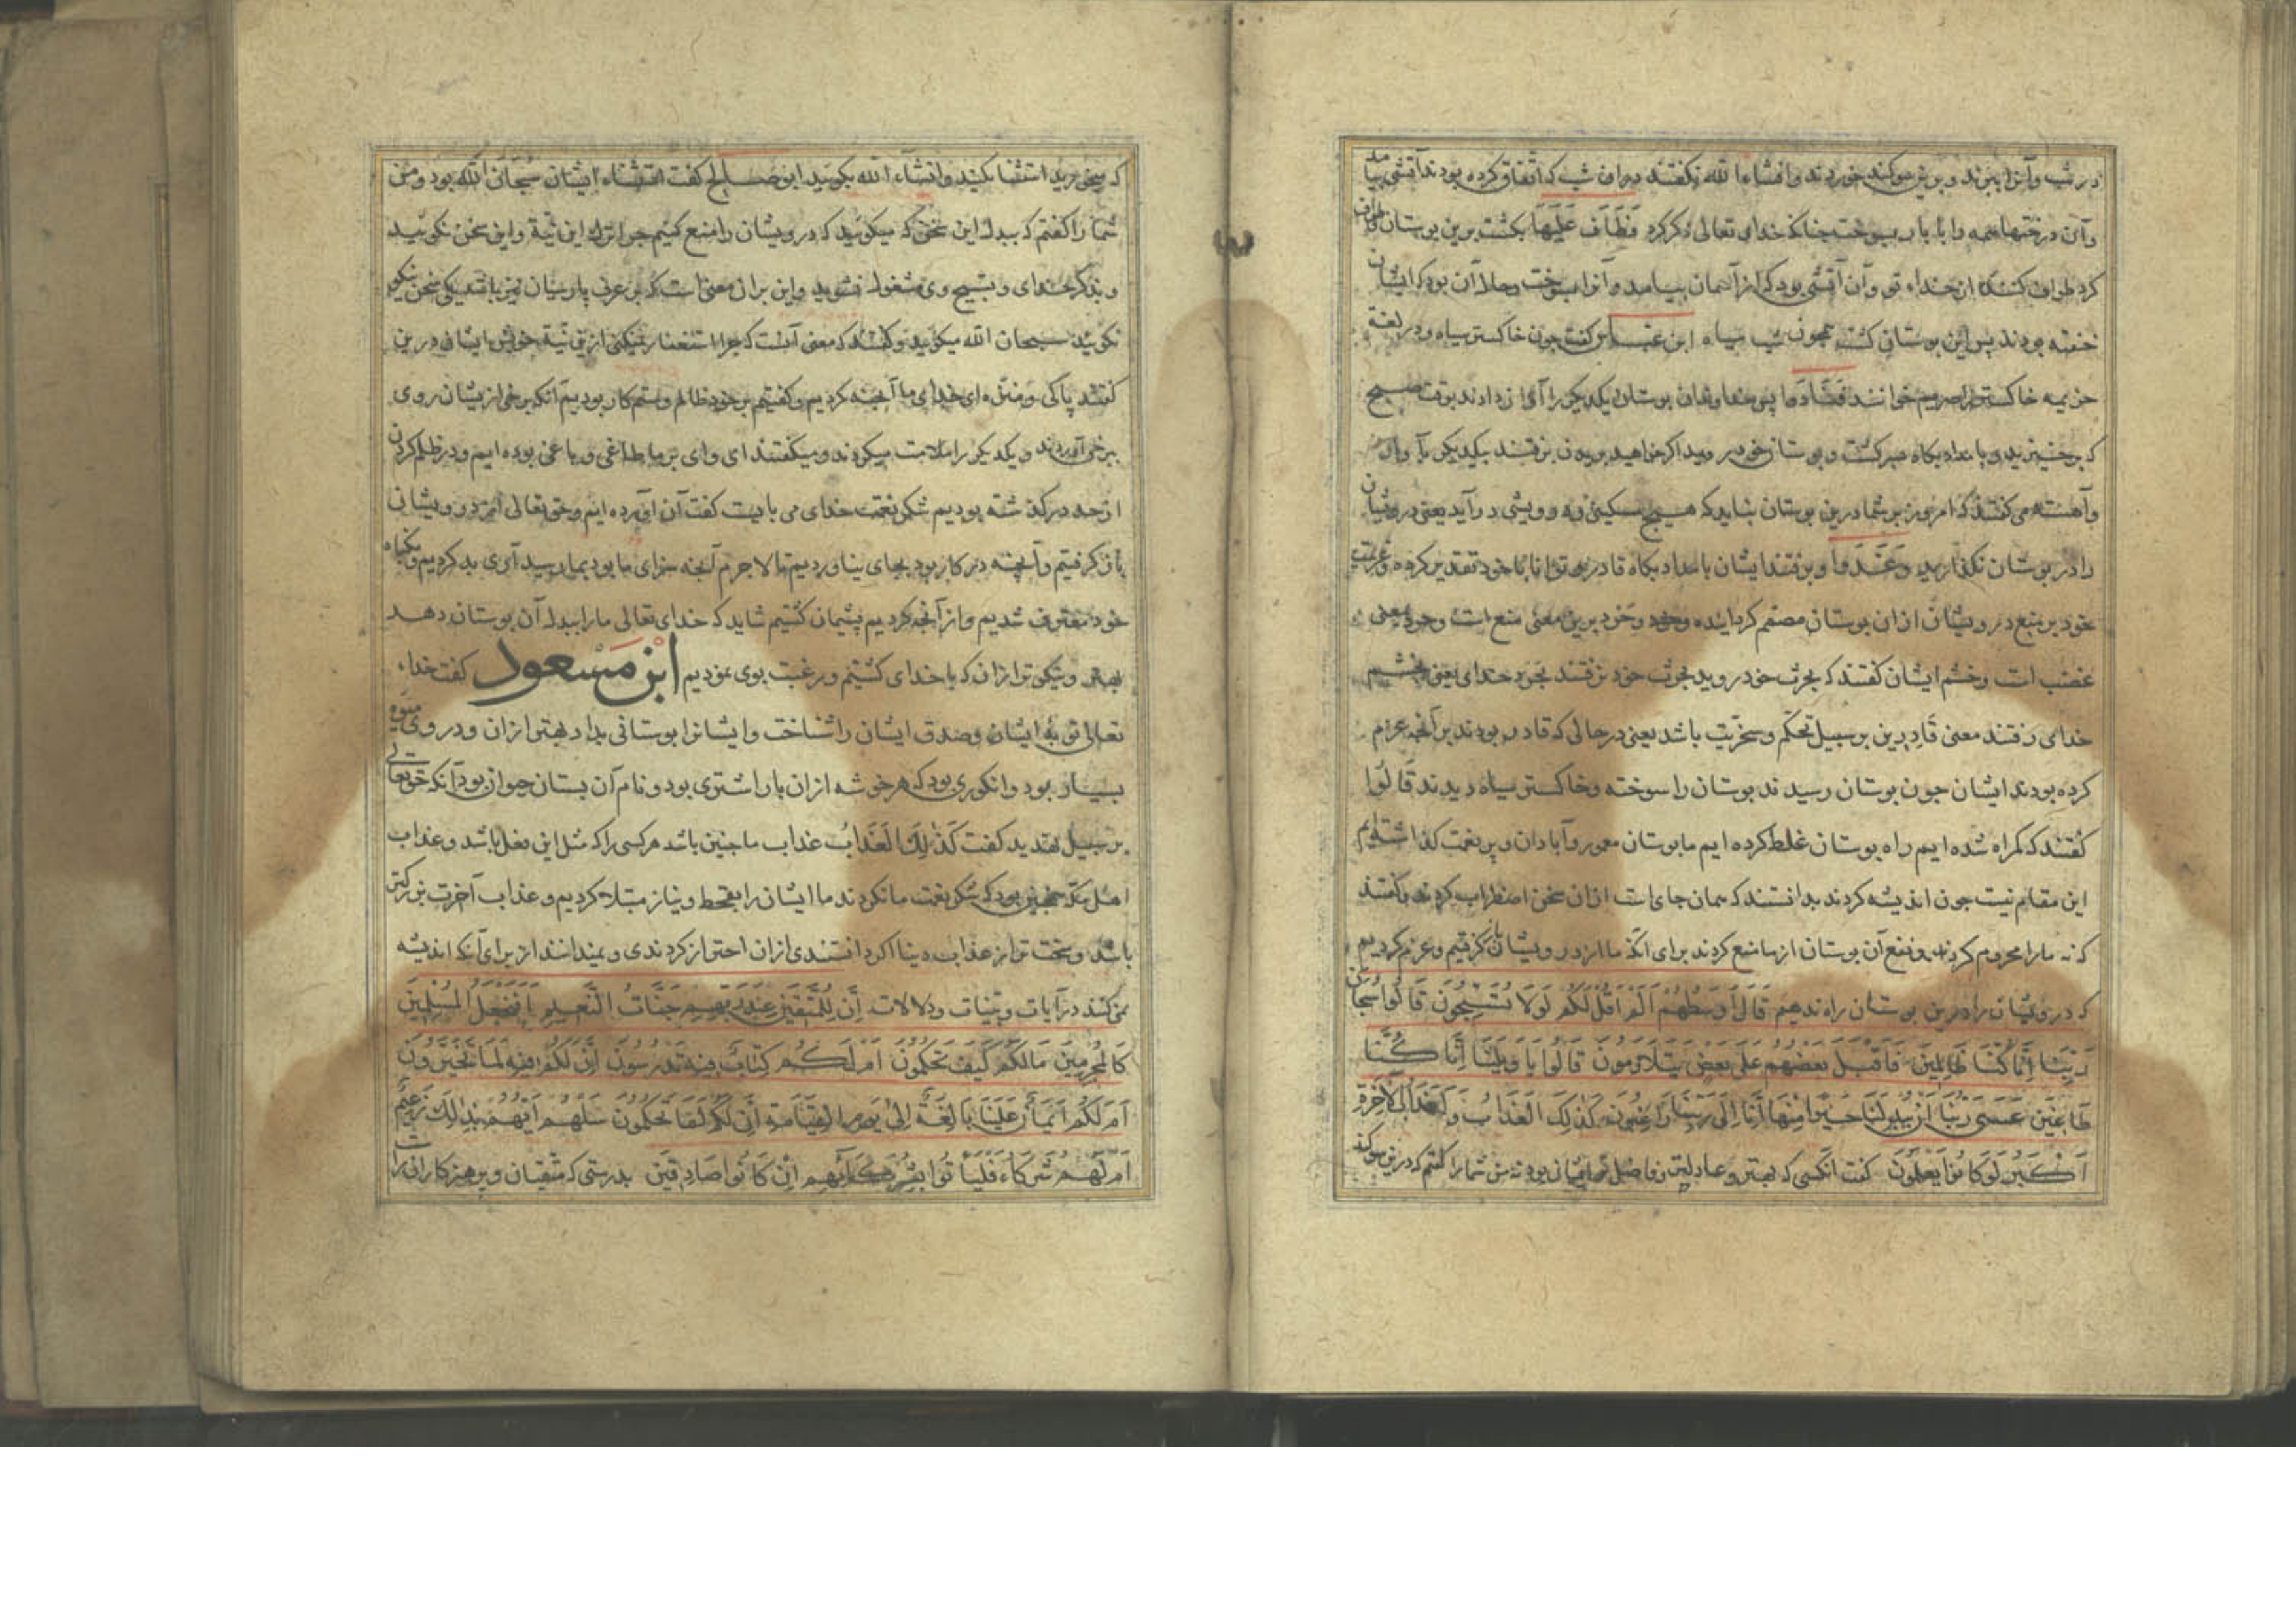 در شب و آنرا ببرند و برین سوکند خوردند و انشاء الله نکفتند در ان شب که اتفاق کرده بودند آتشی بیامد
و آن درختها همه را با بار بسوخت جنانکه خدای تعالی ذکر کرد فَطَافَ عَلَيْهَا بکشت برین بوستان طواف
کرد طواف کننده از خداء تو و آن آتشی بود که از آسمان بیامد و آنرا بسوخت و حال آن بود که ایشان
خفته بودند پس این بوستان کشت همجون شب سیاه ابن عباس کفت جون خاکستر سیاه و در لغة
خزیمه خاکستر را صریم خوانند فَتَنَادَوا پس خداوندان بوستان یکدیکر را آواز دادند بوقت صبح
که برخیزید و بامداد بکاه بسر کشت و بوستان خود روید اکر خواهید بریدن برفتند یکدیکر با واز
و آهسته می کفتند که امروز بر شما درین بوستان نباید که هیج مسکینی و درویشی درآید یعنی درویشان
را در بوستان نکذارید وَغَدَوا و برفتند ایشان بامداد بکاه قادرین توانا با خود تقدیر کرده و عزیمت
خود بر منع درویشان از ان بوستان مصمم کردانیده و حرد و حَرَد برین معنی منع است و حرد بمعنی
غضب است و خشم ایشان کفتند که بحرث خود روید بحرث خود برفتند بحرد خدای یعنی بخشم
خدای رفتند معنی قَادِرِین بر سبیل تحکّم و سخریّت باشد یعنی در حالی که قادر بودند بر آنچه عزم
کرده بودند ایشان جون بوستان رسیدند بوستان را سوخته و خاکستر سیاه دیدند قَالُوا
کفتند که کمراه شده ایم راه بوستان غلط کرده ایم ما بوستان معمور و آبادان و پر نعمت کذاشته ایم
این مقام نیست جون اندیشه کردند بدانستند که همان جای است از ان سخن اضطراب کردند و کفتند
که نه ما را محروم کردند و نفع آن بوستان از ما منع کردند برای انکه ما از درویشان باز کرفتیم و عزم کردیم
که درویشان را درین بوستان راه ندهیم قَالَ أَوْسَطُهُمْ أَلَمْ أَقُلْ لَكُمْ لَوْلَا تُسَبِّحُونَ قَالُوا سُبْحَانَ
رَبِّنَا إِنَّا كُنَّا ظَالِمِينَ فَأَقْبَلَ بَعْضُهُمْ عَلَى بَعْضٍ يَتَلَاوَمُونَ قَالُوا يَا وَيْلَنَا إِنَّا كُنَّا
طَاغِينَ عَسَى رَبُّنَا أَنْ يُبْدِلَنَا خَيْرًا مِنْهَا إِنَّا إِلَى رَبِّنَا رَاغِبُونَ كَذَلِكَ الْعَذَابُ وَلَعَذَابُ الْآخِرَةِ
أَكْبَرُ لَوْ كَانُوا يَعْلَمُونَ کفت آنکسی که بهتر و عادلتر و فاضل تر ایشان بود نه من شما را کفتم که درین سوکند
که می خورید استثنا کنید و انشاء الله بکویید ابوصالح کفت استثناء ایشان سُبحانَ الله بود و من
شما را کفتم که ببدل این سخن که میکوئید که درویشان را منع کنیم جرا ترک این نیّة و این سخن نکویید
و بذکر خدای و تسبیح وی مشغول نشوید و این بر ان معنی است که در عرف پارسیان نیز باشد یکی سخن نیکو
نکوید سبحان الله میکویند و کفتند که معنی آنست که جرا استغفار نمیکنی ازین نیّة خویش ایشان درین
کفتند پاکی و منزّه ای خدای ما آنچه کردیم و کفتیم بر خود ظالم و ستم کار بودیم آنکه برخی از یشان روی
ببرخی آوردند و یکدیکر را ملامت میکردند و میکفتند ای وای بر ما طاغی و باغی بوده ایم و در ظلم کردن
از حد درکذشته بودیم شکر نعمت خدای می بایست کفت آن آورده ایم و حق تعالی از درویشان
باز کرفتیم و آنچه در کار بود بجای نیاوردیم تا لاجرم آنچه سزای ما بود بما رسید آری بد کردیم و بکناه
خود معترف شدیم و از آنچه کردیم پشیمان کشتیم شاید که خدای تعالی ما را ببدل آن بوستان دهد
بهتر و نیکوتر از ان که با خدای کشتیم و رغبت بوی نمودیم ابن مَسْعود کفت خداء
تعالی توبهٔ ایشان و صدق ایشان را شناخت و ایشانرا بوستانی بداد بهتر از ان و در وی میوه
بسیار بود و انکوری بود که هر خوشه از ان بار اشتری بود و نام آن بستان حیوان بود آنکه حق تعالی
بر سبیل تهدید کفت كَذَلِكَ الْعَذَابُ عذاب ما جنین باشد هر کسی را که مثل این فعل باشد و عذاب
اهل مکّه همجنین بود که شکر نعمت ما نکردند ما ایشان را بقحط و نیاز مبتلا کردیم و عذاب آخرت بزرکتر
باشد و سخت تر از عذاب دنیا اکر دانستندی از ان احتراز کردندی و نمیدانند از برای آنکه اندیشه
نمی کنند در آیات و بیّنات و دلالات إِنَّ لِلْمُتَّقِينَ عِنْدَ رَبِّهِمْ جَنَّاتِ النَّعِيمِ أَفَنَجْعَلُ الْمُسْلِمِينَ
كَالْمُجْرِمِينَ مَا لَكُمْ كَيْفَ تَحْكُمُونَ أَمْ لَكُمْ كِتَابٌ فِيهِ تَدْرُسُونَ إِنَّ لَكُمْ فِيهِ لَمَا تَخَيَّرُونَ
أَمْ لَكُمْ أَيْمَانٌ عَلَيْنَا بَالِغَةٌ إِلَى يَوْمِ الْقِيَامَةِ إِنَّ لَكُمْ لَمَا تَحْكُمُونَ سَلْهُمْ أَيُّهُمْ بِذَلِكَ زَعِيمٌ
أَمْ لَهُمْ شُرَكَاءُ فَلْيَأْتُوا بِشُرَكَائِهِمْ إِنْ كَانُوا صَادِقِينَ بدرستی که متّقیان و پرهیزکاران را